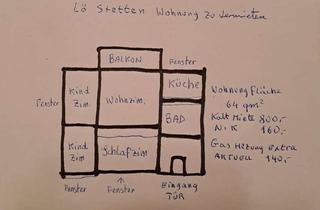 Lö Stetten Wohnung zu vermieten
BALKON
Fenster
Kind
Zim.
Wohnzim.
Küche
Fenster
BAD
Kind
Zim
Schlafzim
Fenster
Fenster
Eingang
TÜR
Wohnung Fläche
64 qm²
Kalt Miete 800,-
N.K 160,-
Gas Hitzung extra
AKTUELL 140,-